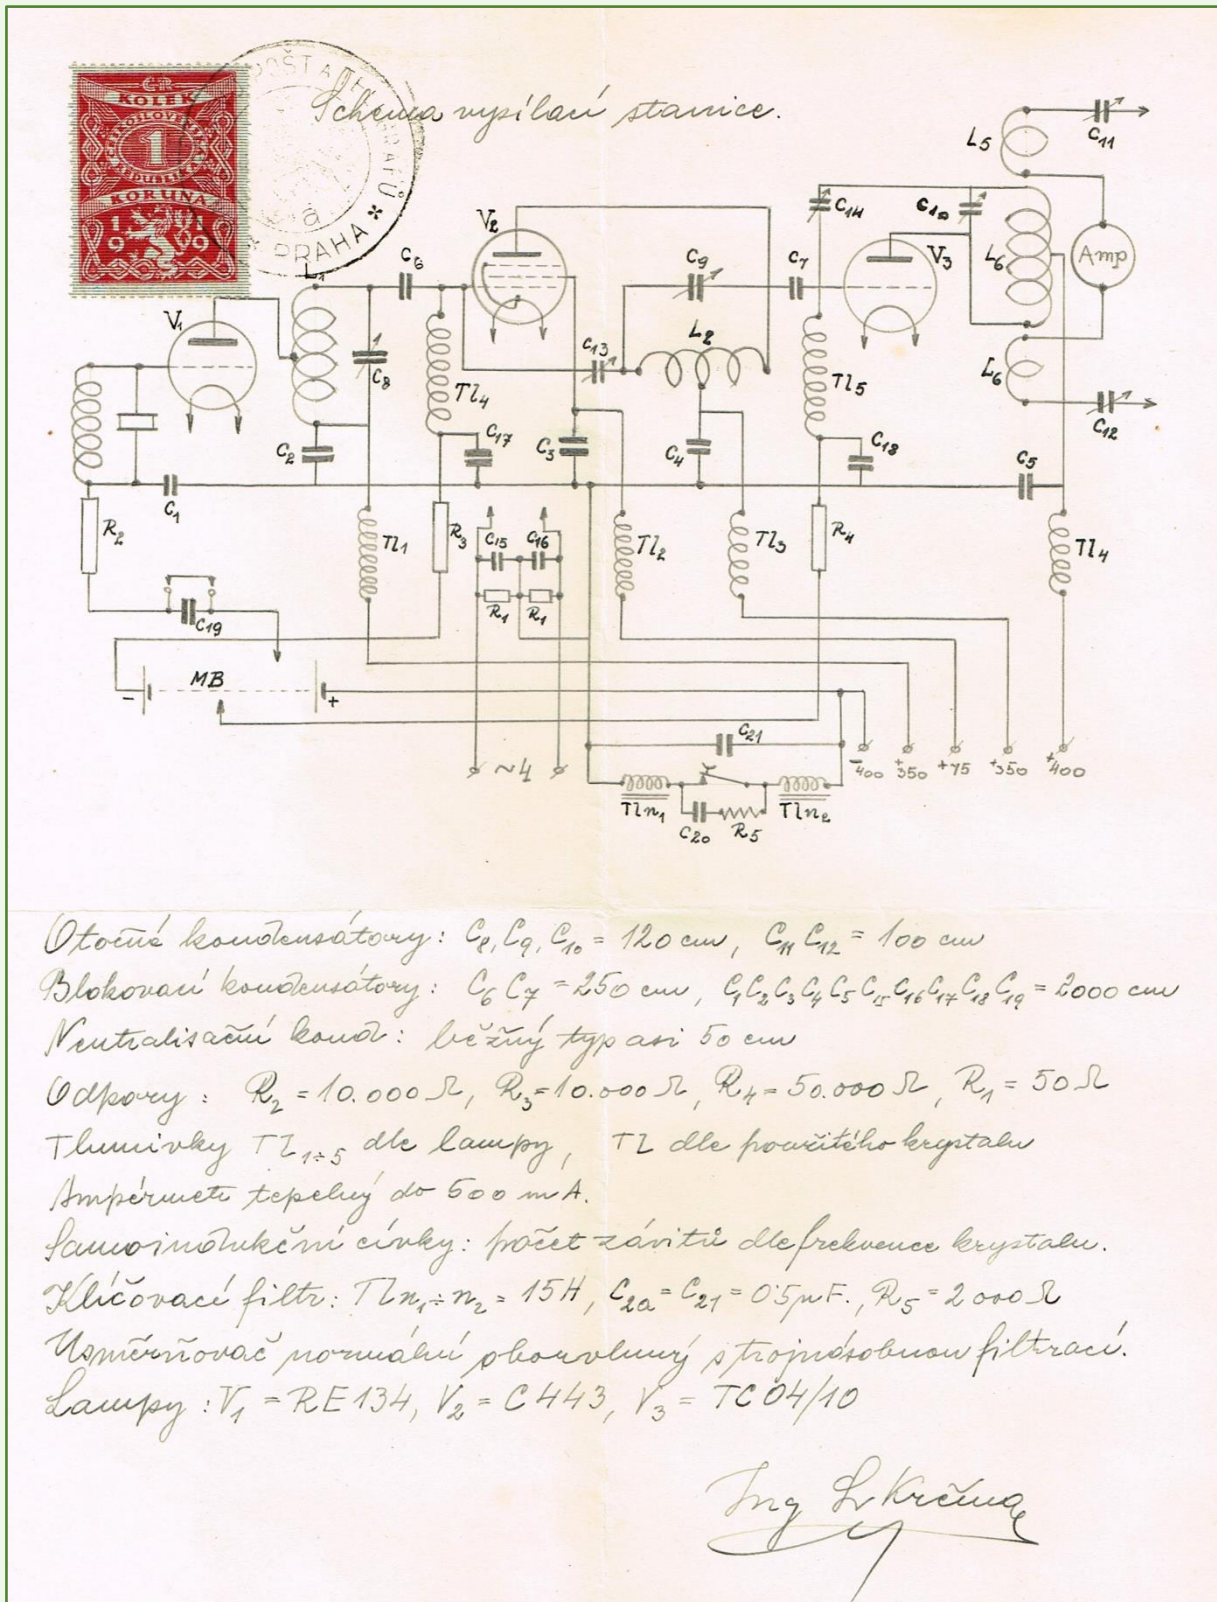 Schema vysílací stanice.
ČR
KOLEK
ČESKOSLOVENSKÁ
1
REPUBLIKA
KORUNA
19 19
POŠT A TELEGRAFŮ
a
* PRAHA *
L5
C11
V2
C14
C10
C6
C9
C7
V3
L6
Amp
L1
V1
C13
L2
C8
Tl4
Tl5
L6
C12
C2
C17
C3
C4
C18
C5
C1
R2
Tl1
R3
C15
C16
Tl2
Tl3
R4
Tl4
R1
R1
C19
MB
-
+
~4
C21
-400
+350
+75
+350
+400
Tln1
C20
R5
Tln2
Otočné kondensátory: C8, C9, C10 = 120 cm, C11 C12 = 100 cm
Blokovací kondensátory: C6 C7 = 250 cm, C1 C2 C3 C4 C5 C15 C16 C17 C18 C19 = 2000 cm
Neutralisační kond: běžný typ asi 50 cm
Odpory: R2 = 10.000 Ω, R3 = 10.000 Ω, R4 = 50.000 Ω, R1 = 50 Ω
Tlumivky Tl1÷5 dle lampy, Tl dle použitého krystalu
Ampérmetr tepelný do 500 mA.
Samoindukční cívky: počet závitů dle frekvence krystalu.
Klíčovací filtr: Tln1 ÷ n2 = 15H, C20 = C21 = 0'5 µF., R5 = 2000 Ω
Usměrňovač normální obouvlnný s trojnásobnou filtrací.
Lampy: V1 = RE134, V2 = C443, V3 = TC 04/10
Ing Krčma